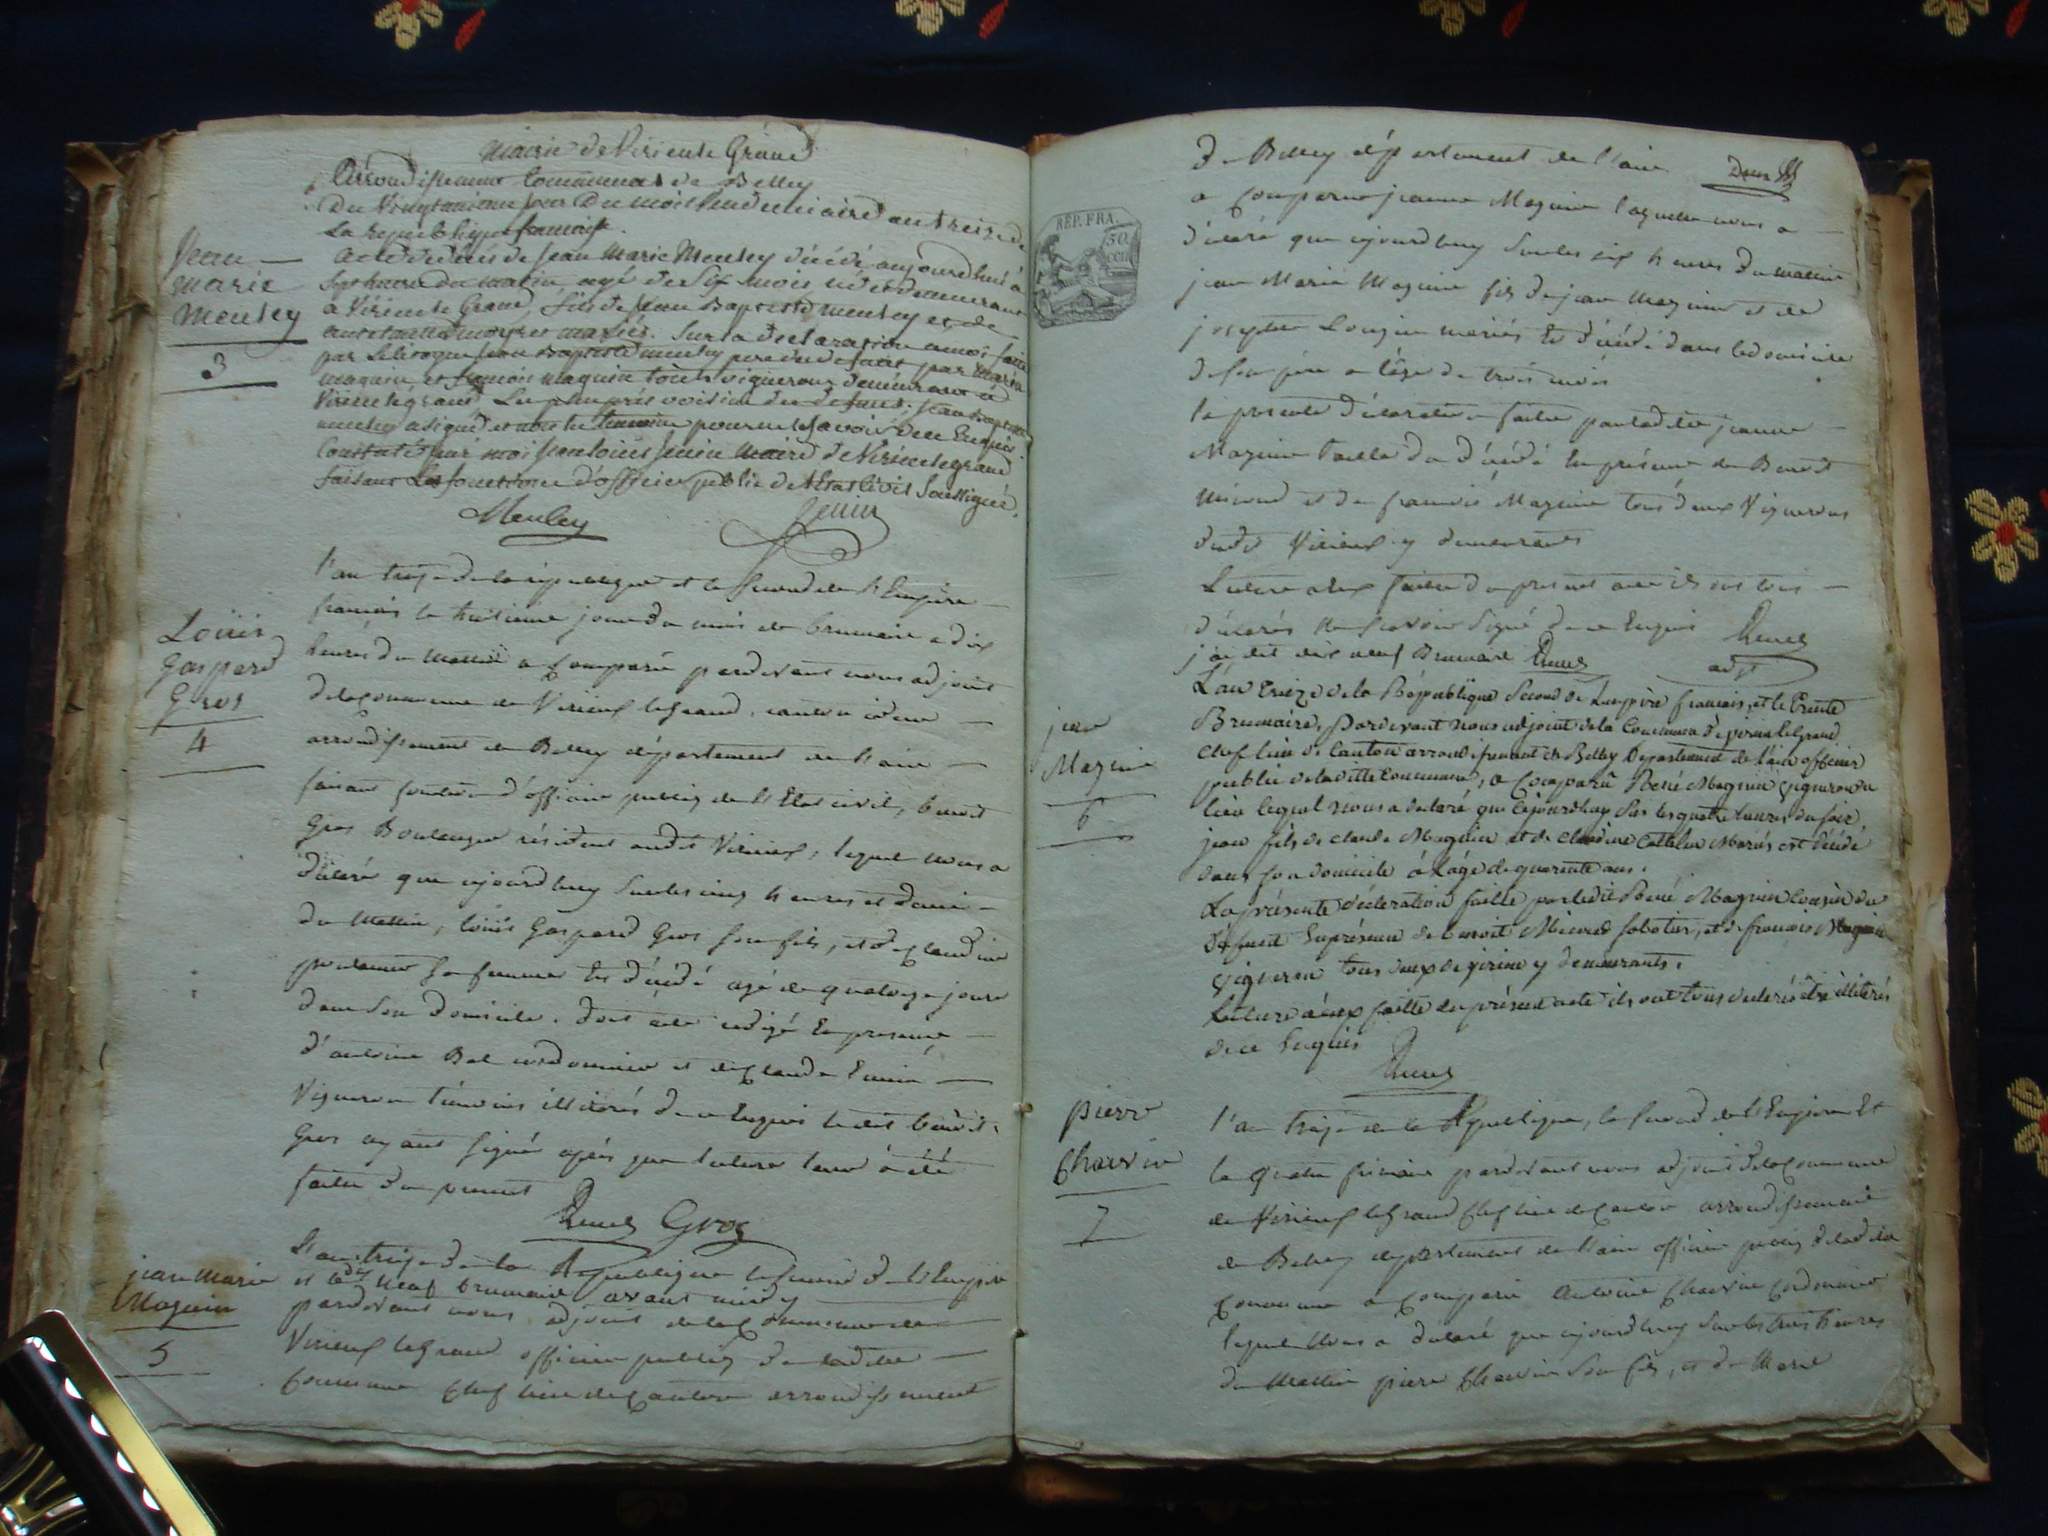 Mairie de Virieu le Grand
Arrondissement Communal de Belley
Du Vingtunieme jour Du mois Vendemiaire an treize de
La republique francaise.
Jean
marie
Meuley
3
Acte de décès de Jean Marie Meuley décédé aujourdhui à
Sept heures du matin, agé de Six mois, né et demeurant
a Virieu le Grand, fils de Jean Baptiste meuley et de
mariés. Sur la declaration a moi faite
par Jean Baptiste meuley pere du defunt par
maquin, et françois maquin tous vignerons demeurant à
Virieu le grand Les plus pres voisins du defunt; Jean Baptiste
meuley a signé et non les temoins pour ne le savoir De ce Enquis.
Constaté par moi Jean louis Jenin Maire de Virieu le grand
faisant Les fonctions d'officier public de l'Etat Civil Soussigné.
Meuley Jenin
Louis
Gaspard
Gros
4
l'an treize de la république et le Second de l'Empire
français le huitieme jour du mois de brumaire a dix
heures du mattin a Comparu pardevant nous adjoint
de la Commune de Virieux le Grand, canton
arrondissement de Belley département de l'ain
faisant fonction d'officier public de l'Etat civil, benoit
Gros Boulanger résident audit Virieux, lequel nous a
déclaré que aujourdhuy Sur les cinq heures et demi
du Mattin, louis Gaspard Gros Son fils, et de Claudine
Sa femme Est décédé agé de quatorze jours
dans Son domicile. Dont acte redigé En presence
d'antoine Bal cordonnier et de Claude
Vigneron témoins illiterés de ce Enquis le dit benoit
Gros ayant Signé après que lecture leur a été
faitte du present
Gros
jean Marie
Maquin
5
l'an treize de la Republique le Second de l'Empire
et le dix Neuf brumaire avant midy
pardevant nous adjoint de la Commune de
Virieux le Grand officier public de ladite
Commune Chef lieu de Canton arrondissement
de Belley département de l'ain Deux
REP. FRA.
50
cen
a Comparu jeanne Maquin laquelle nous a
déclaré que aujourdhuy Sur les six heures du mattin
jean Marie Maquin fils de jean Maquin et de
josephte mariés Est décédé dans le domicile
de Son père a l'age de trois mois
la presente déclaration faitte par ladite jeanne
Maquin du décédé En présence de Benoit
Micoud et de francois Maquin tous deux Vignerons
dudit Virieux y demeurants
Lecture a Eux faitte du present acte ils ont tous
déclarés ne Scavoir Signé de ce Enquis
j'ai dit dix neuf Brumaire adjt
jean
Maquin
6
L'an treize de la République Second de L'empire francais, et le trente
Brumaire, Pardevant nous adjoint de la Commune de virieu le grand
chef lieu de Canton arrondissement de Belley Département de l'ain officier
public de la ditte Commune, a Comparu René Maquin vigneron du
lieu lequel nous a declaré que cejourdhuy Sur les quatre heures du soir
jean fils de claude Maquin et de claudine Mariés est décédé
dans son domicile à l'âge de quarante ans.
La présente déclaration faitte par ledit René Maquin Cousin du
Défunt En présence de benoit Micoud sabotier, et de francois Maquin
vigneron tous deux de virieu y demeurants.
Lecture à eux faitte du présent acte ils ont tous déclarés être illiterés
de ce Enquis
pierre
Charvin
7
l'an treize de la République, le Second de l'Empire Et
le quatre frimaire pardevant nous adjoint de la Commune
de Virieux le Grand Chef lieu de Canton arrondissement
de Belley departement de l'ain officier public de ladite
Commune a Comparu Antoine Charvin Cordonnier
lequel Nous a declaré que aujourdhuy Sur les trois heures
du Mattin pierre Charvin Son fils, et de Marie